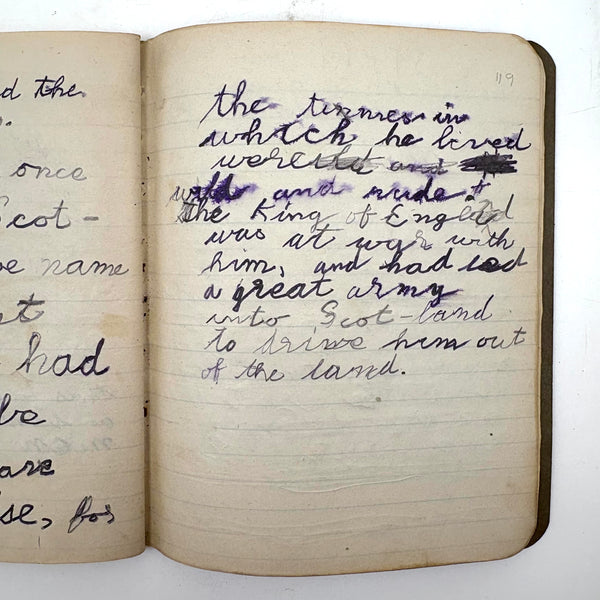 d the
once
Scot-
e name
t
had
be
are
se, for
119
the times in
which he lived
were and
wild and rude.
the King of England
was at war with
him, and had led
a great army
into Scot-land
to drive him out
of the land.